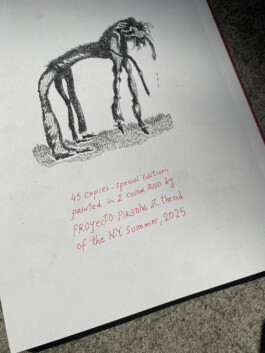 45 copies - special edition
printed in 2 color RISO by
PROYECTO PIRANHA at the end
of the N.Y. Summer, 2025